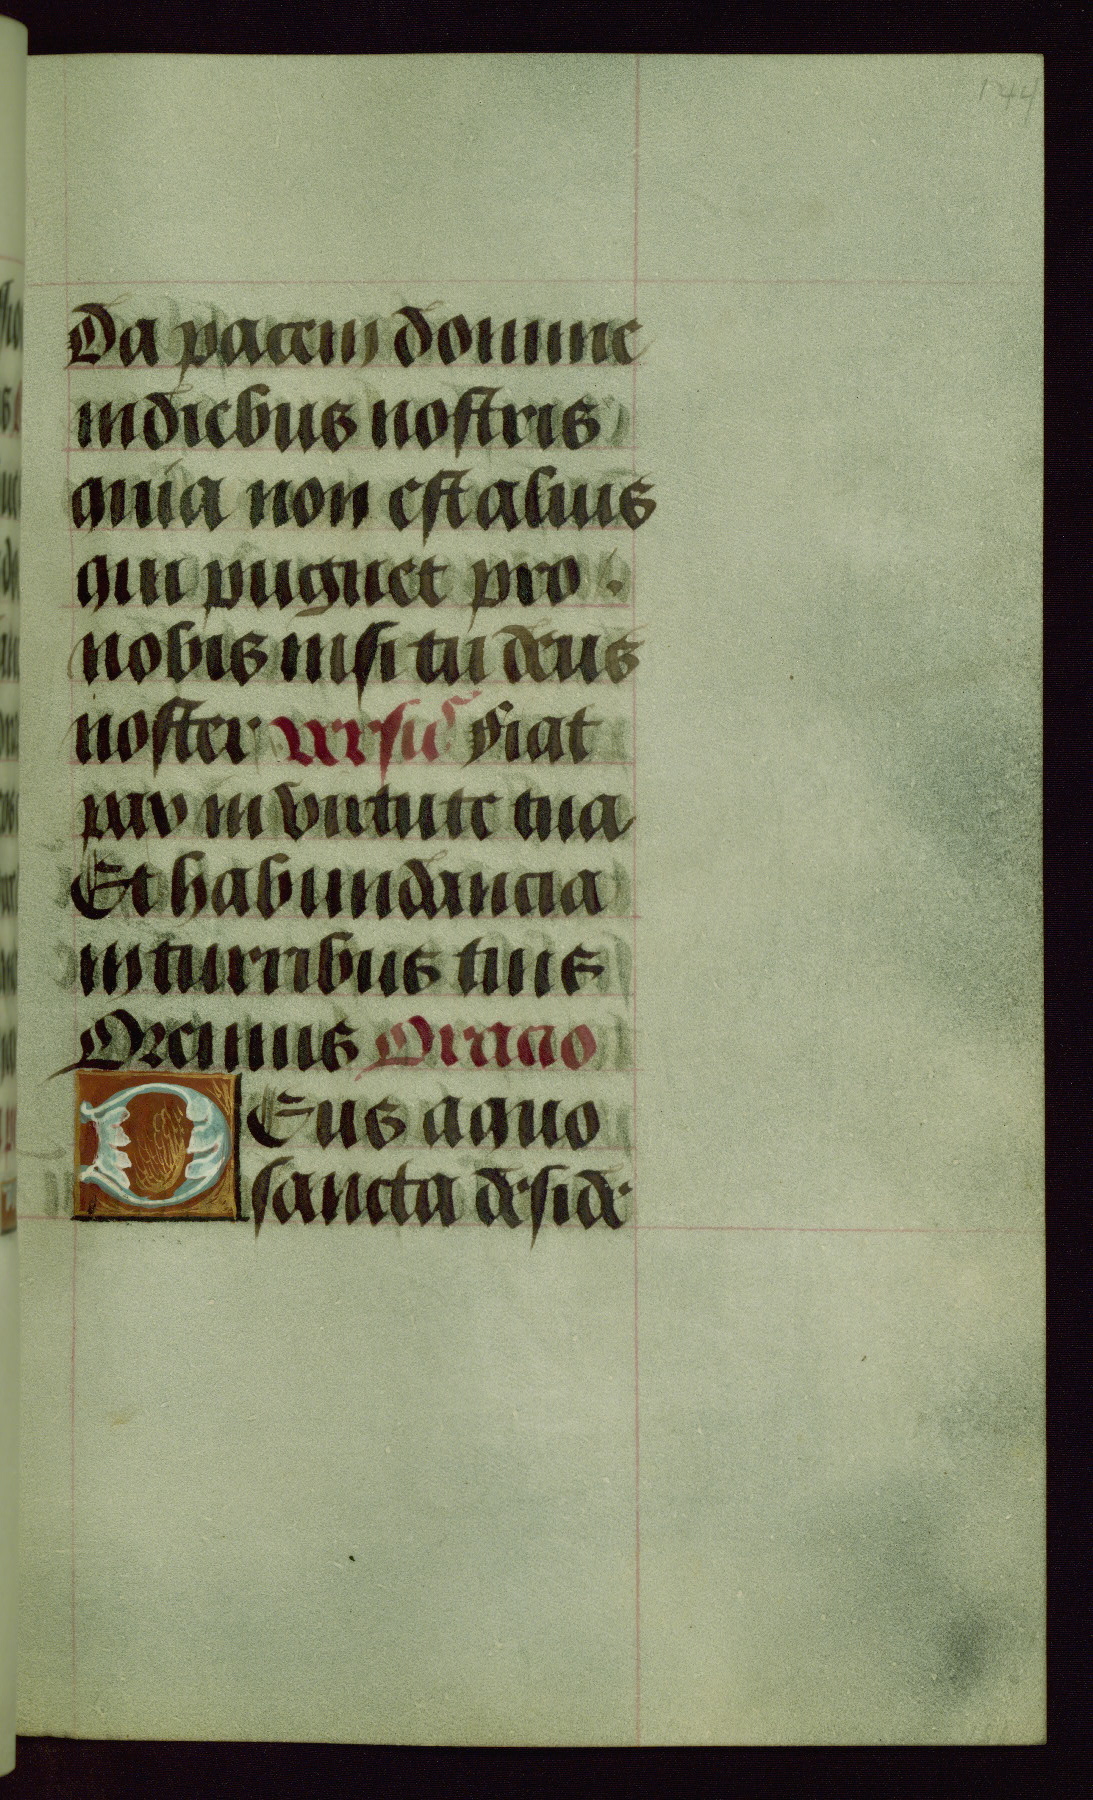 144
Da pacem domine
in diebus nostris
quia non est alius
qui pugnet pro
nobis nisi tu deus
noster Versus Fiat
pax in virtute tua
Et habundancia
in turribus tuis
Oremus Oracio
Deus a quo
sancta deside